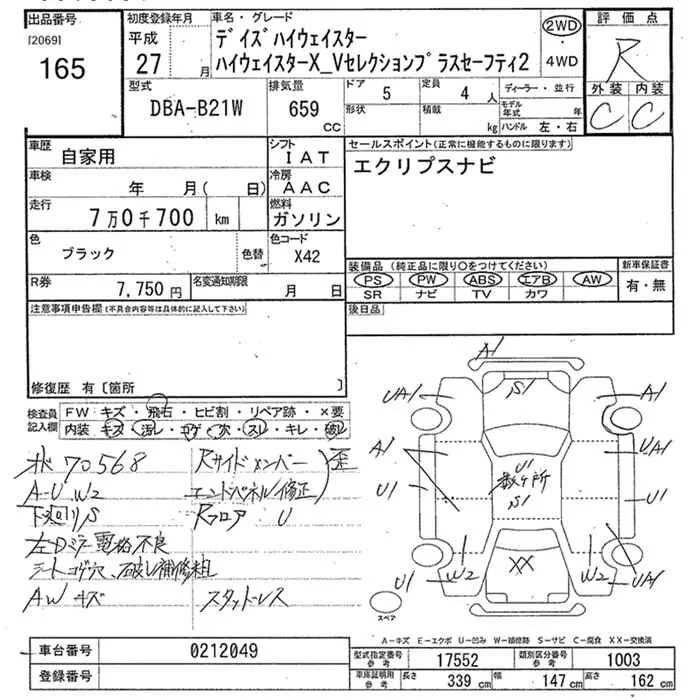 出品番号
[2069]
165
初度登録年月
平成
27 月
車名・グレード
デイズハイウェイスター
ハイウェイスターX_Vセレクションプラスセーフティ2
2WD
・
4WD
評価点
R
外装 内装
C C
型式
DBA-B21W
排気量
659
CC
ドア 5
形状
定員 4 人
積載 kg
ディーラー・並行
モデル年式 年
ハンドル 左・右
車歴
自家用
シフト
IAT
車検
年 月( 日)
冷房
AAC
走行
7万0千700 km
燃料
ガソリン
色
ブラック
色替
色コード
X42
R券
7,750 円
名変通知期限
月 日
セールスポイント(正常に機能するものに限ります)
エクリプスナビ
装備品(純正品に限り○をつけてください)
新車保証書
PS PW ABS エアB AW
有・無
SR ナビ TV カワ
後日品
注意事項申告欄(不具合内容等は具体的に記入して下さい)
修復歴 有〔箇所 〕
検査員記入欄
FW キズ・飛石・ヒビ割・リペア跡・×要
内装 キズ・汚レ・コゲ・穴・スレ・キレ・破レ
状 70568
A-U W2
下廻りS
左Dミラー電格不良
シートコゲ穴、破レ補修粗
AW キズ
Rサイドメンバー
エンドパネル修正
歪
Rフロア U
スタッドレス
A1
S1
UA1
A1
A1
UA1
U1
U1
U1
数ヶ所
S1
W2
XX
W2
UA1
U1
スペア
A−キズ E−エクボ U−凹み W−補修跡 S−サビ C−腐食 XX−交換済
車台番号
0212049
登録番号
型式指定番号
参考
17552
類別区分番号
参考
1003
車庫証明用
参考
長さ 339 cm
幅 147 cm
高さ 162 cm